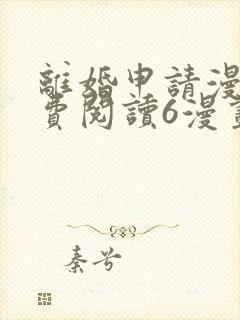 離婚申請漫
費閱讀6漫畫
秦兮